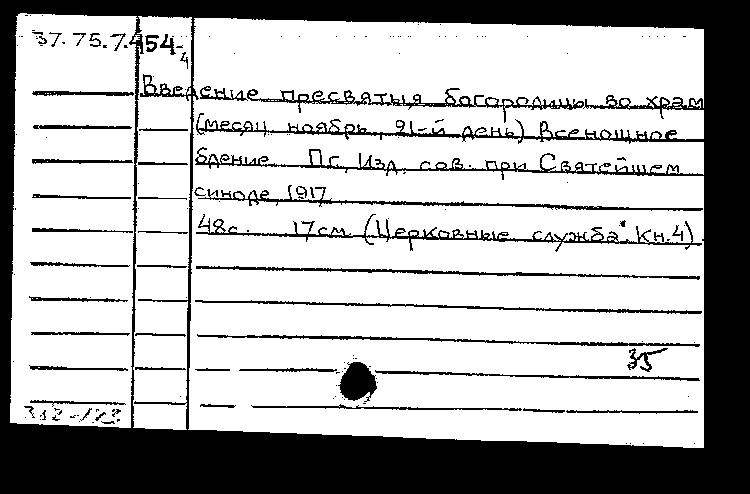 37.75.7.454-4
Введение пресвятыя богородицы во храм
(месяц ноябрь, 21-й день) Всенощное
бдение Пг, Изд. сов. при Святейшем
синоде, 1917
48с. 17см (Церковные служба". Кн.4).
35